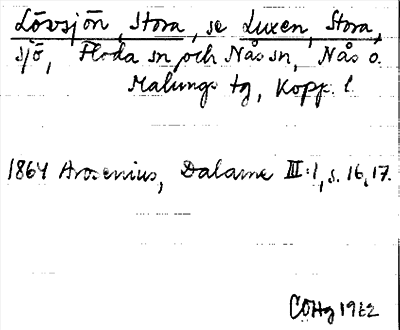 Lövsjön, Stora, se Luxen, Stora,
sjö, Floda sn och Nås sn, Nås o.
Malungs tg, Kopp. l.
1864 Arosenius, Dalarne III:1, s. 16, 17.
COHg 1922